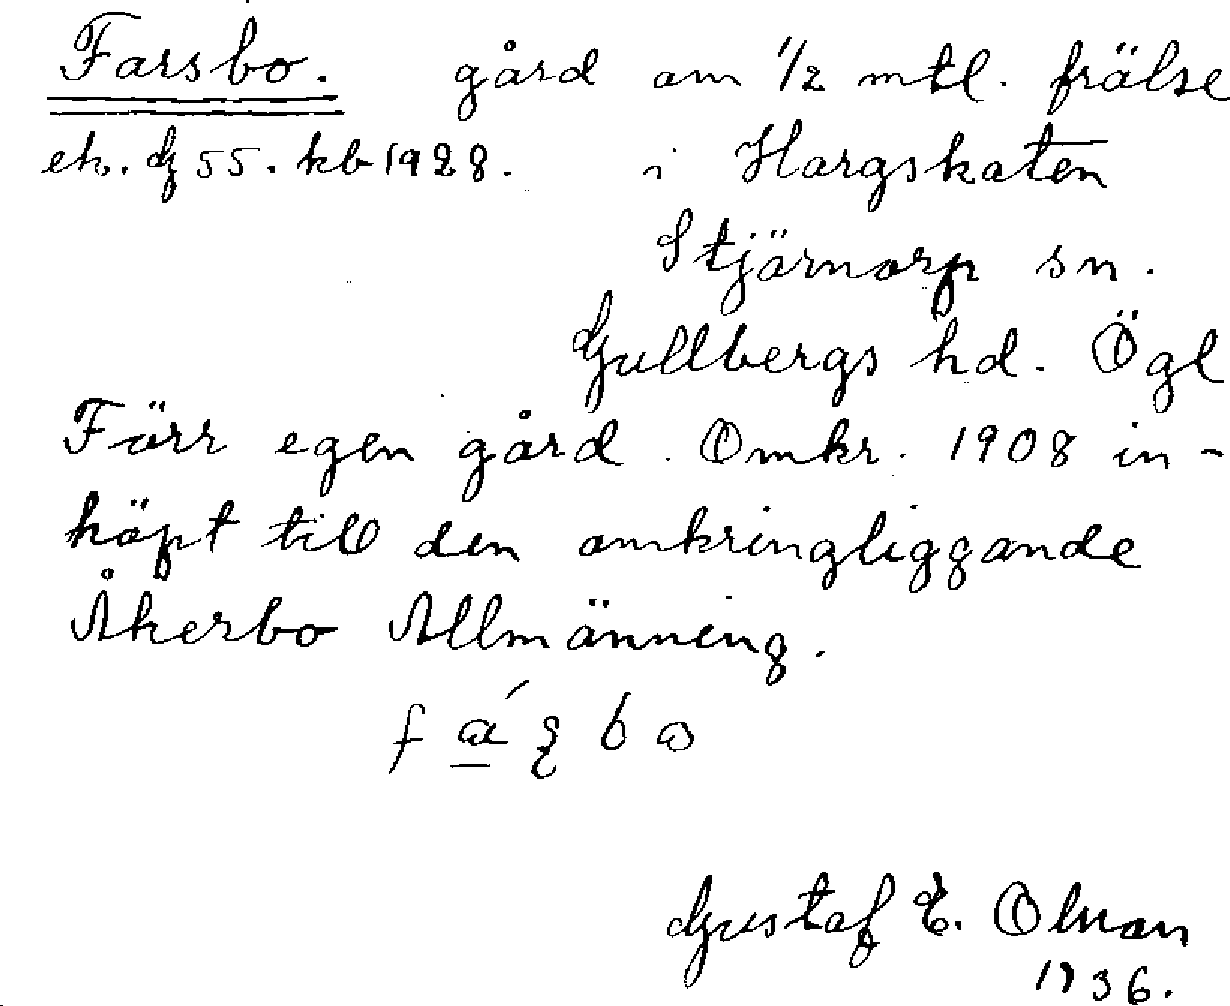 Farsbo. gård om 1/2 mtl. frälse
ek. G 55. kb 1928. i Hargskaten
Stjärnorp sn.
Gullbergs hd. Ögl
Förr egen gård. Omkr. 1908 in-
köpt till den omkringliggande
Åkerbo Allmänning.
Gustaf E. Olman
1936.